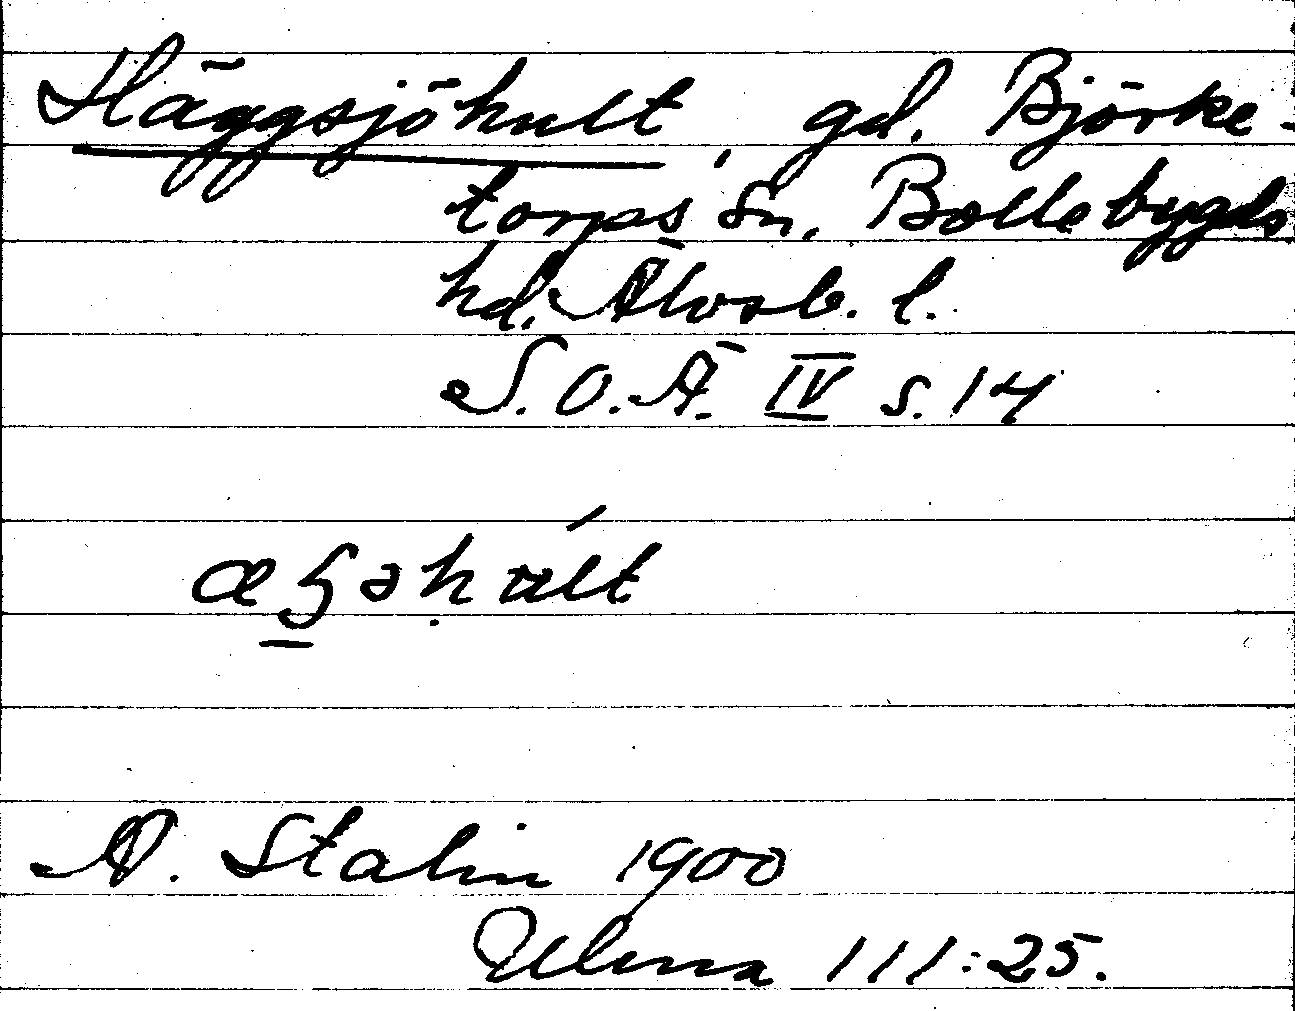 Häggsjöhult, gd. Björke-
torps sn. Bollebygds
hd. Älvsb. l.
S.O.Ä. IV s. 14
A. Stalin 1900
111:25.